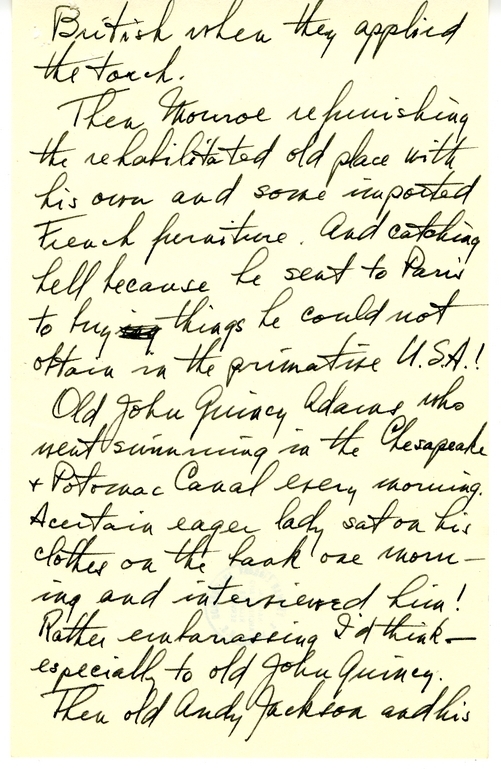 British when they applied
the torch.
Then Monroe refurnishing
the rehabilitated old place with
his own and some imported
French furniture. And catching
hell because he sent to Paris
to buy things he could not
obtain in the primative U.S.A.!
Old John Quincy Adams who
went swimming in the Chesapeake
+ Potomac Canal every morning.
A certain eager lady sat on his
clothes on the bank one morn-
ing and interviewed him!
Rather embarrassing I'd think—
especially to old John Quincy.
Then old Andy Jackson and his